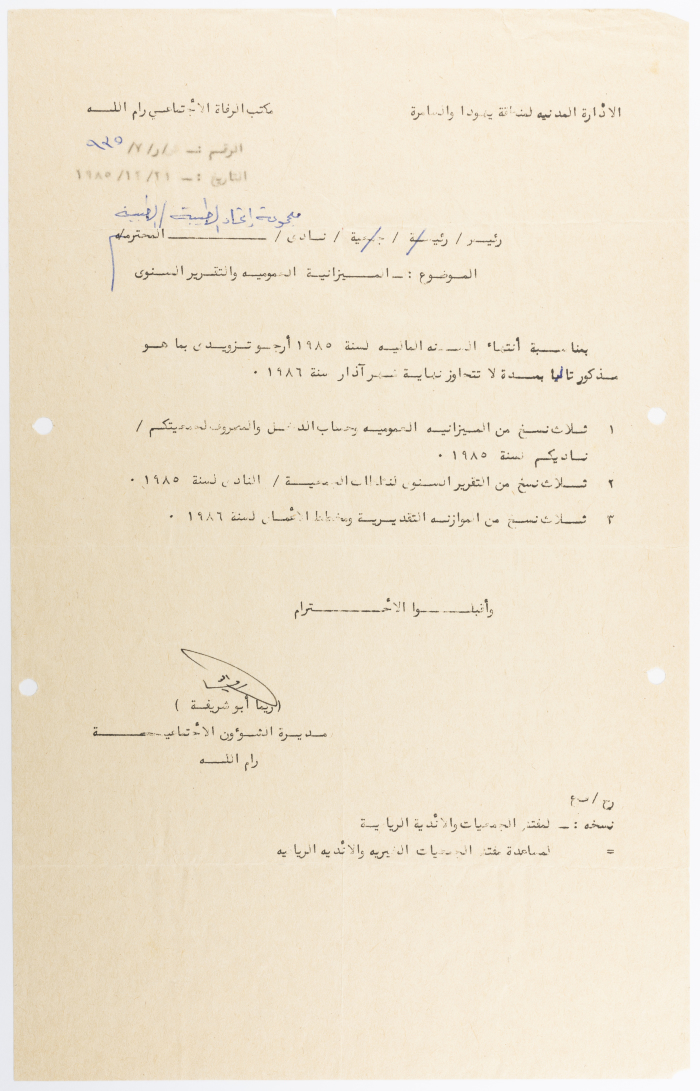 الادارة المدنيه لمنطقة يهودا والسامرة
مكتب الرفاة الاجتماعي رام اللـــه
الرقم :ـ /٧/ ٩٣٥
التاريخ :ـ ١٩٨٥/١٢/٢١
إتحاد الطيبة / الطيبة
رئيس / رئيسة / جمعية / نادى / ــــــــــ المحترم
الموضوع :ـ الميزانية العموميه والتقرير السنوى
بمناسبة أنتهاء السنه الماليه لسنة ١٩٨٥ أرجو تزويدى بما هو
مذكور تاليا بمدة لا تتجاوز نهاية شهر آذار سنة ١٩٨٦ ٠
١ ثلاث نسخ من الميزانيه العموميه وحساب الدخل والمصروف لجمعيتكم /
ناديكم لسنة ١٩٨٥ ٠
٢ ثلاث نسخ من التقرير السنوى لنشاطات الجمعية / النادى لسنة ١٩٨٥ ٠
٣ ثلاث نسخ من الموازنه التقديرية ومخطط الاعمال لسنة ١٩٨٦ ٠
وأقبلــــوا الاحــــترام
(ريما أبو شريفة )
مديرة الشؤون الاجتماعيــــة
رام اللـــه
نسخه :ـ لمفتش الجمعيات والاندية الرياضية
= لمساعدة مفتش الجمعيات الخيريه والانديه الرياضيه